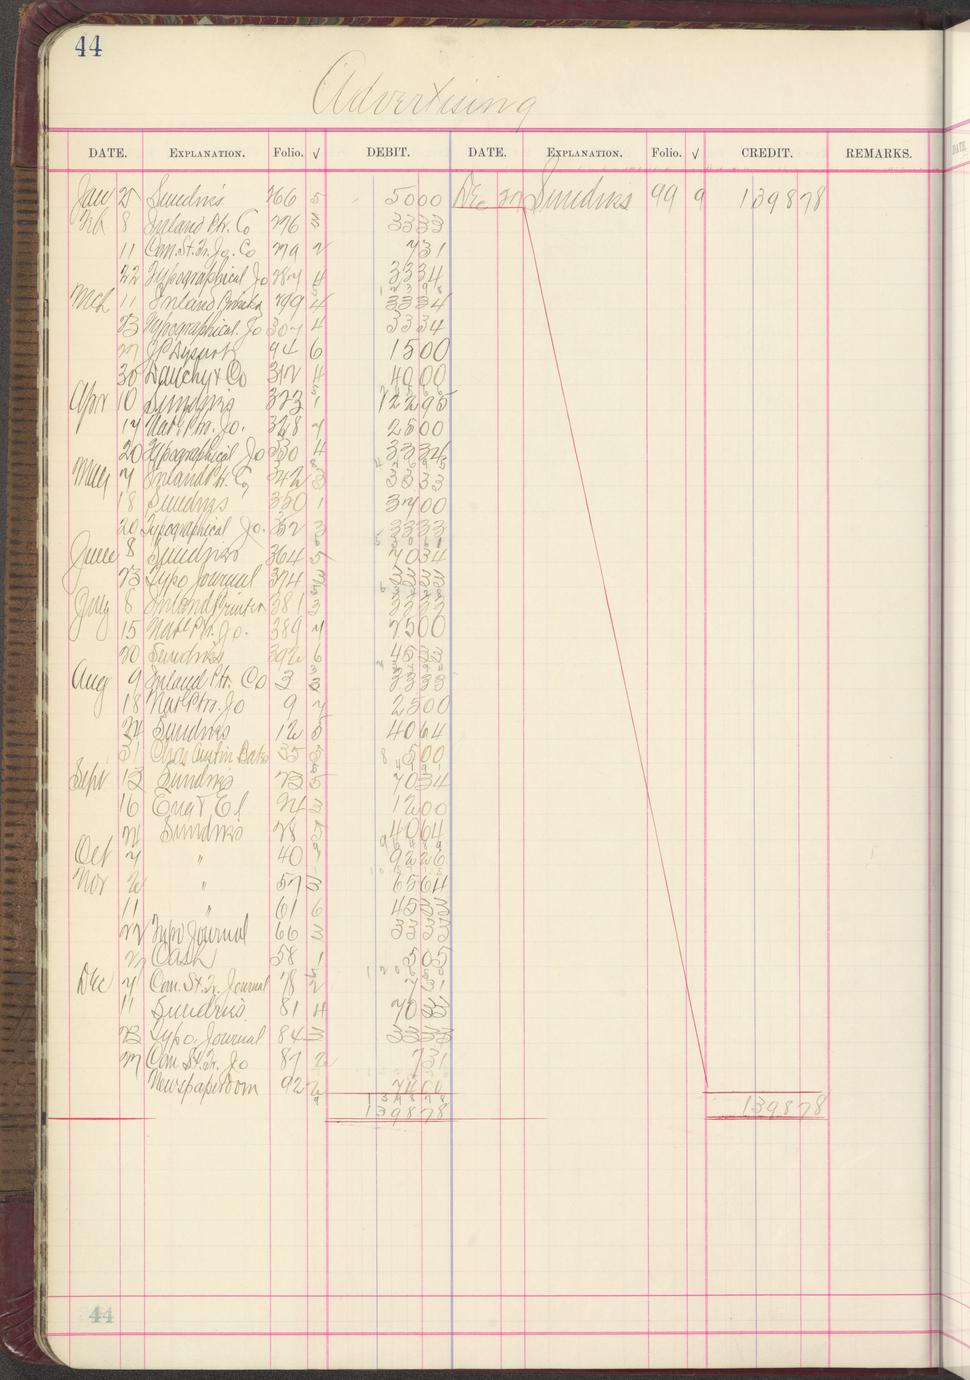 44
Advertising
DATE. EXPLANATION. Folio. √ DEBIT. DATE. EXPLANATION. Folio. √ CREDIT. REMARKS.
Jan Sundries 266 5 5000 Dec 27 Sundries 99 9 139878
Feb 8 Inland Ptr. Co 276 3 3333
11 Com. St. Tr. Jo. Co 279 2 731
22 Typographical Jo 287 4 3334
Mch 11 Inland Printer 299 4 3334
23 Typographical Jo 307 4 3334
27 94 6 1500
30 Dauchy & Co 312 4 4000
Apr 10 Sundries 323 1 12295
14 Natl Ptr. Jo. 328 2500
20 Typographical Jo 330 4 3334
May 4 Inland Ptr. Co 342 3 3333
18 Sundries 350 1 3700
20 Typographical Jo. 352 3 3333
June 8 Sundries 364 5 7034
23 Typo Journal 374 3 3333
July 8 Inland Printer 381 3 3333
15 Natl Ptr. Jo. 389 2500
20 Sundries 392 6 4533
Aug 9 Inland Ptr. Co 3 3 3333
18 Natl Ptrs. Jo 9 2500
24 Sundries 12 5 4064
31 Chas Austin Bates 35 5 500
Sept 13 Sundries 23 5 7034
16 Eng & El 24 3 1200
24 Sundries 28 5 4064
Oct 4 " 40 9226
Nov 2 " 57 3 6564
11 " 61 6 4533
22 Typo Journal 66 3 3333
27 Cash 58 1 505
Dec 4 Com. St. Tr. Journal 78 2 731
11 Sundries 81 4 7033
23 Typo. Journal 84 3 3333
27 Com. St. Tr. Jo 87 2 731
Newspaperdom 92 2 7400
139878
139878 139878
44